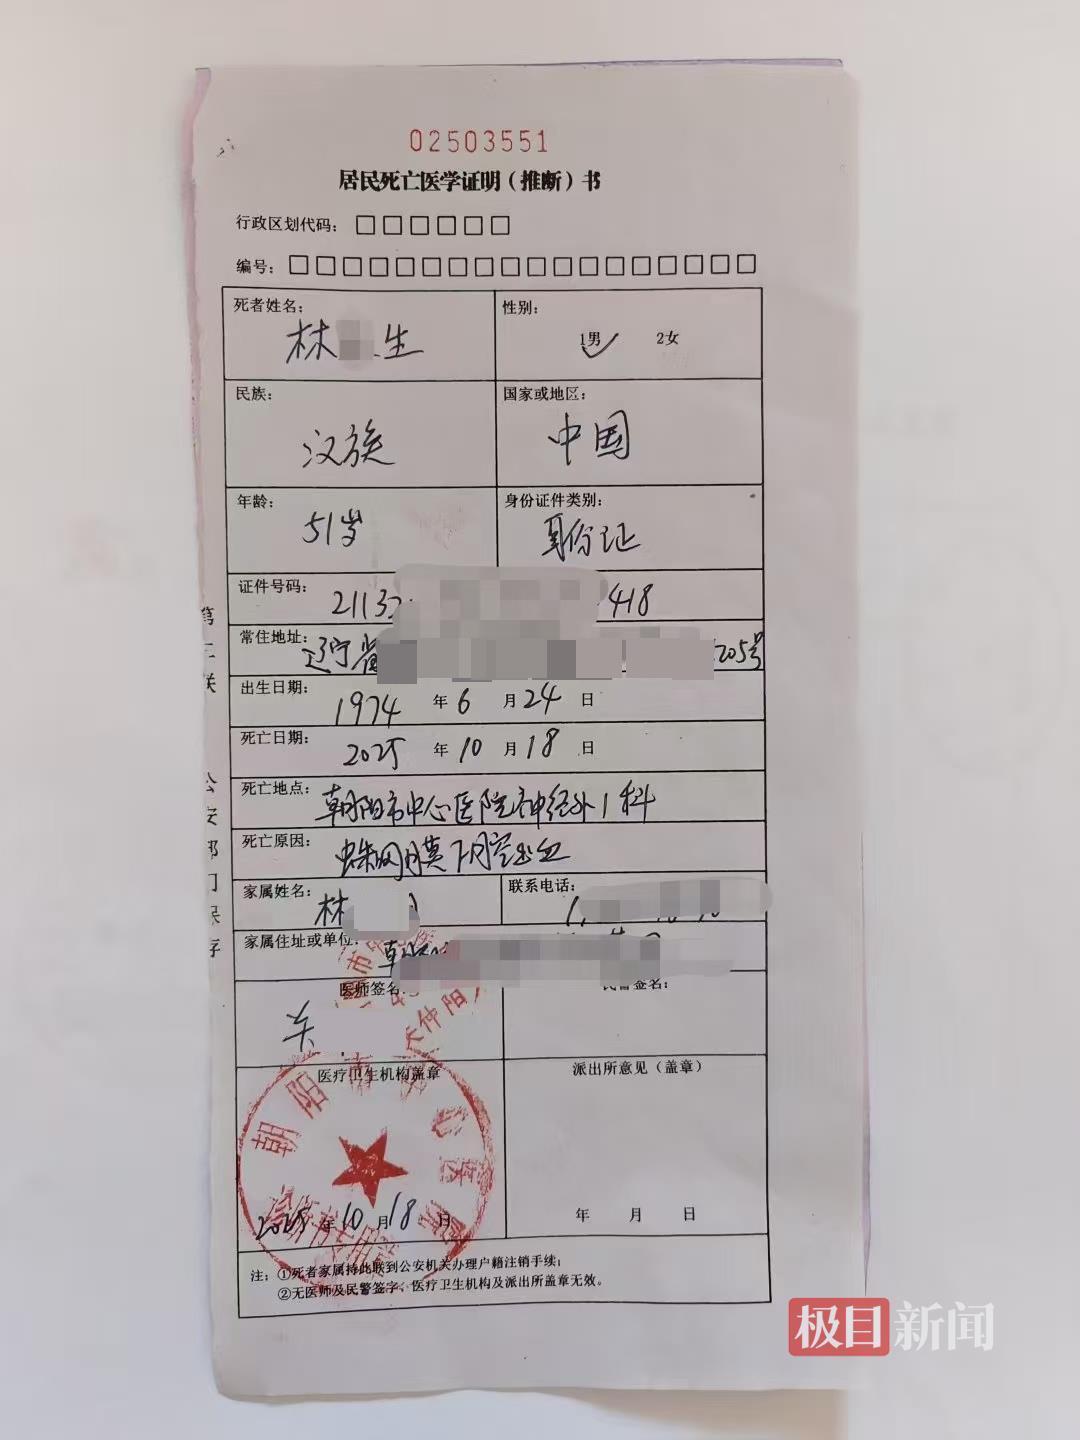 02503551
居民死亡医学证明（推断）书
行政区划代码：
编号：
死者姓名：
林 生
性别：
1男 2女
民族：
汉族
国家或地区：
中国
年龄：
51岁
身份证件类别：
身份证
证件号码：
2113 418
常住地址：
辽宁省 205号
出生日期：
1974 年 6 月 24 日
死亡日期：
2025 年 10 月 18 日
死亡地点：
朝阳市中心医院神经外1科
死亡原因：
蛛网膜下腔出血
家属姓名：
林
联系电话：
家属住址或单位：
医师签名：
关
民警签名：
医疗卫生机构盖章
朝阳市中心医院
2025 年 10 月 18 日
派出所意见（盖章）
年 月 日
注：①死者家属持此联到公安机关办理户籍注销手续；
②无医师及民警签字、医疗卫生机构及派出所盖章无效。
第三联 公安部门保存
极目新闻